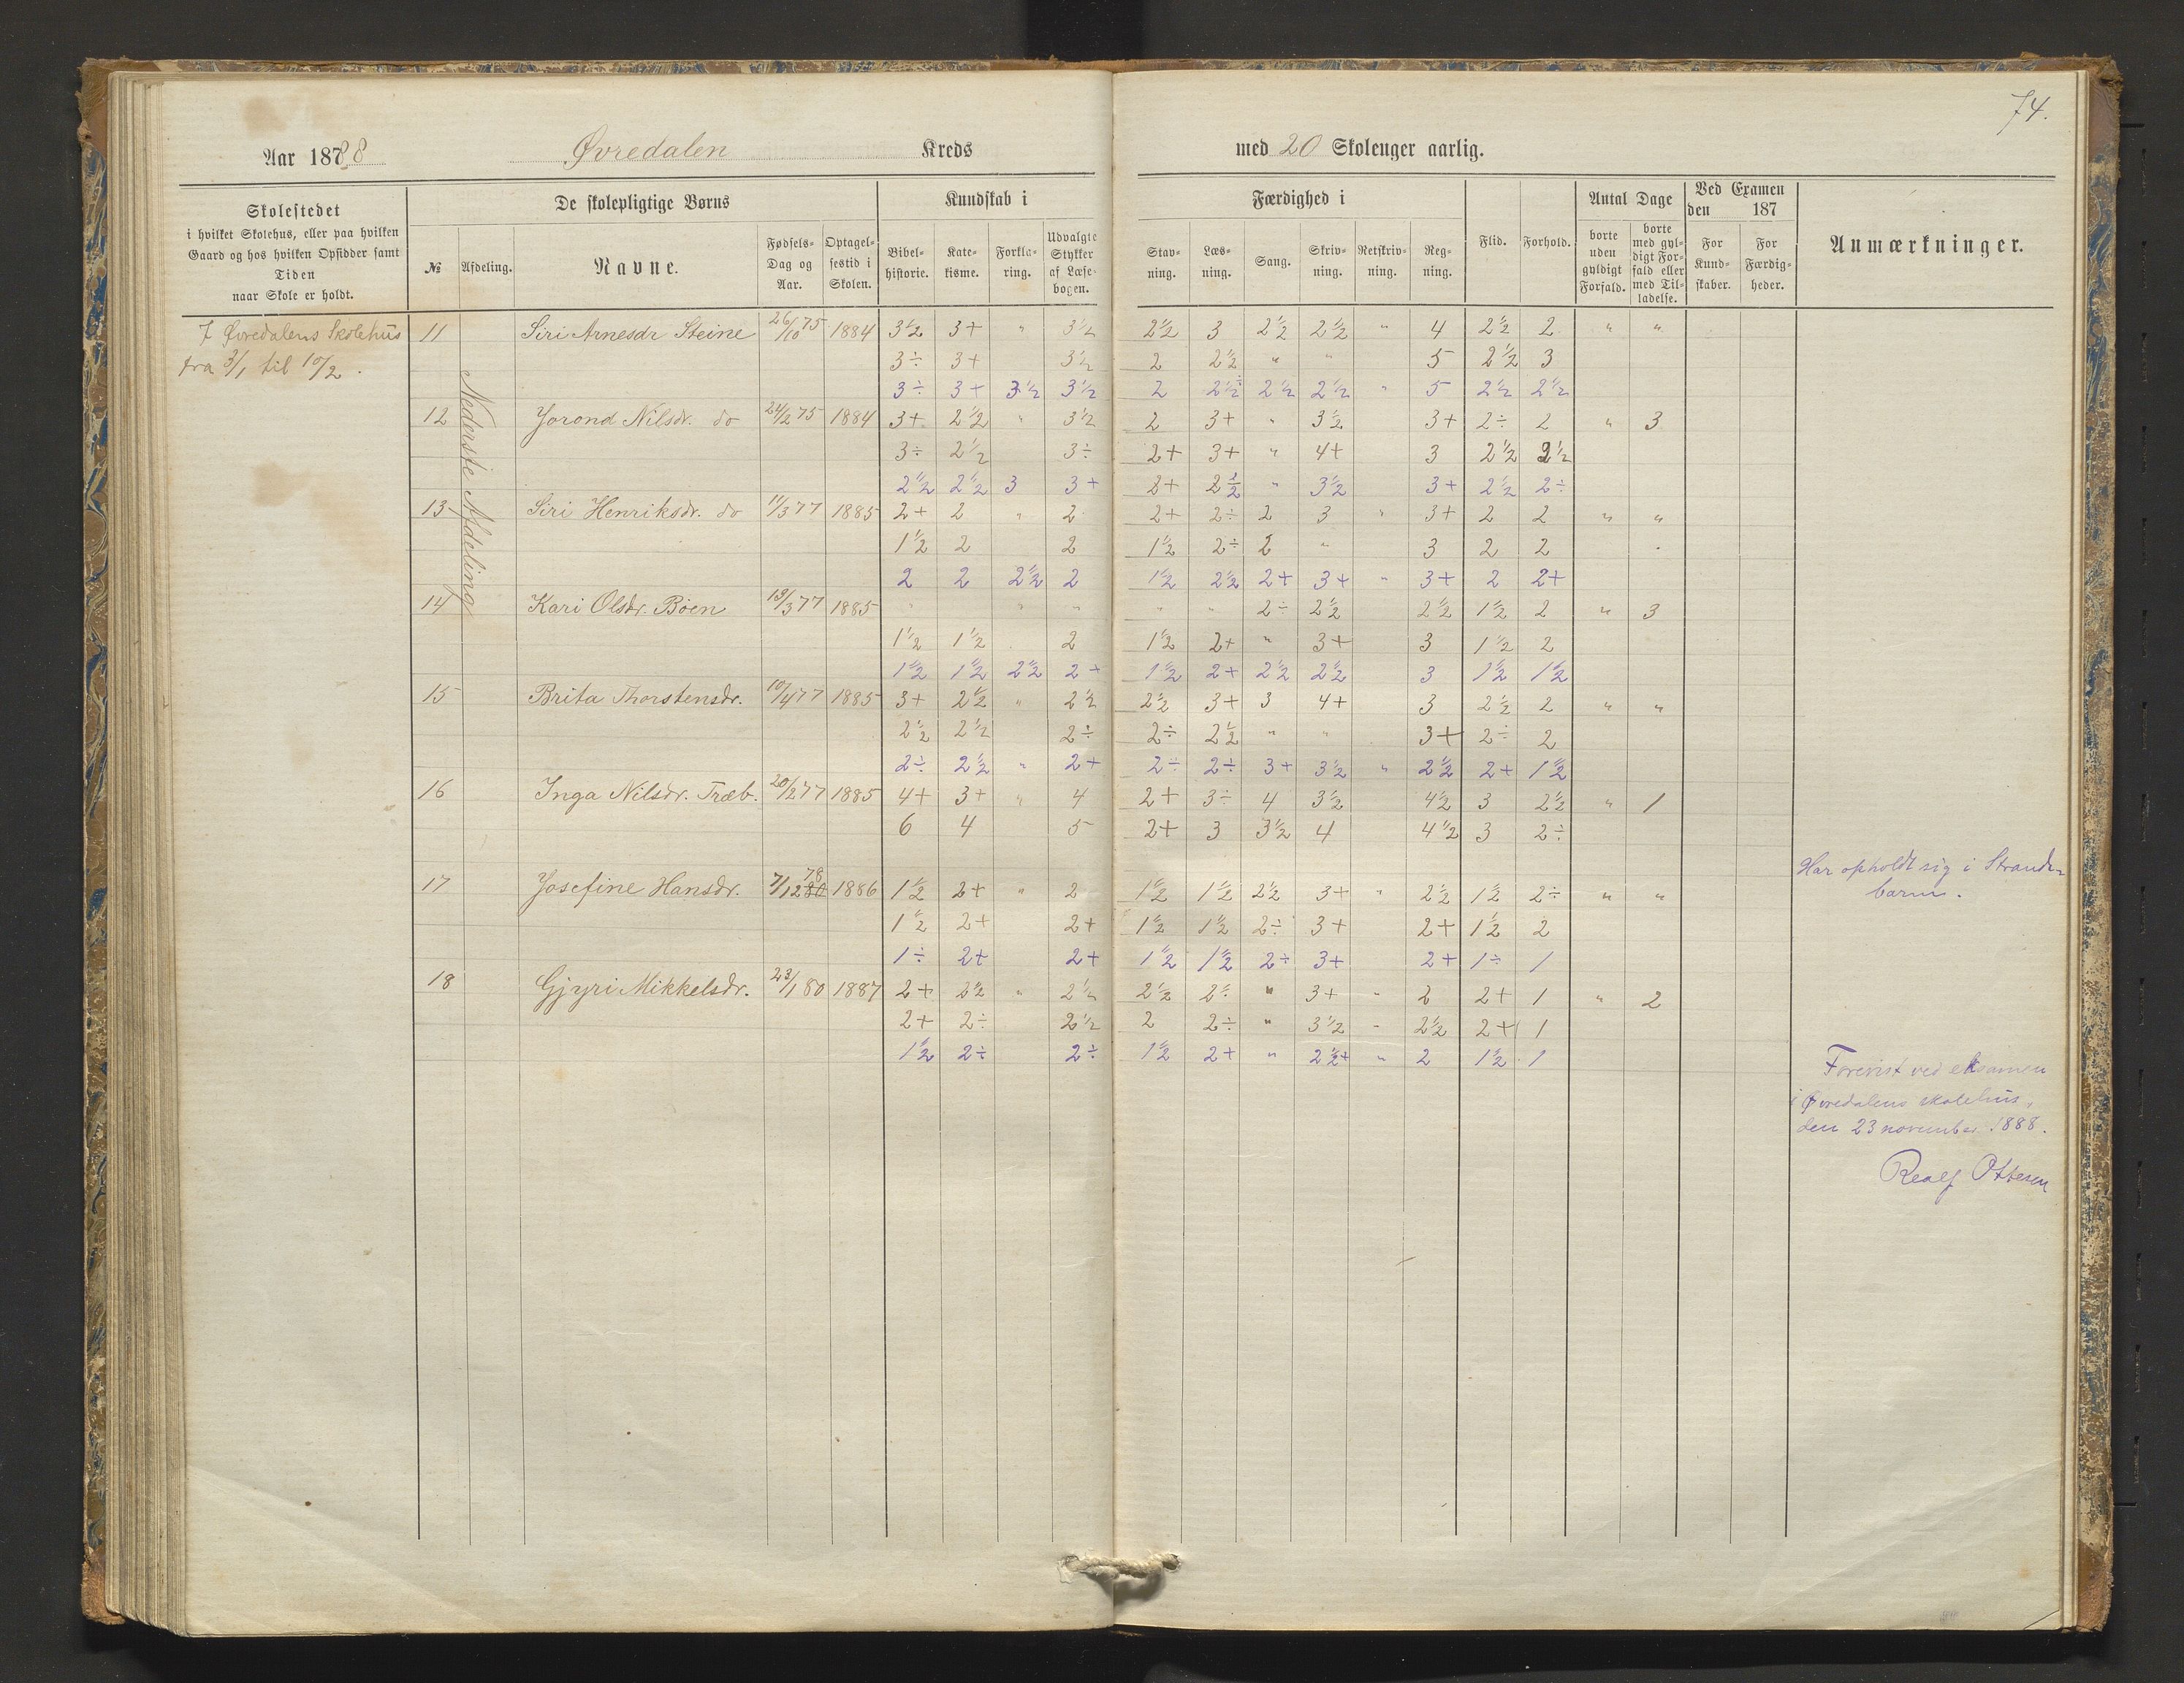 74.
Aar 1888 Øvredalen Kreds med 20 Skoleuger aarlig.
Skolestedet
i hvilket Skolehus, eller paa hvilken
Gaard og hos hvilken Opsidder samt
Tiden
naar Skole er holdt.
De skolepligtige Børns
№ Afdeling. Navne. Fødsels-Dag og Aar. Optagelsestid i Skolen.
Kundskab i
Bibelhistorie. Katekisme. Forklaring. Udvalgte Stykker af Læsebogen.
Færdighed i
Stavning. Læsning. Sang. Skrivning. Retskrivning. Regning.
Flid. Forhold.
Antal Dage
borte uden gyldigt Forfald. borte med gyldigt Forfald eller med Tilladelse.
Ved Examen den 187
For Kundskaber. For Færdigheder.
Anmærkninger.
I Øvredalens Skolehus
fra 3/1 til 10/2.
Nederste Afdeling
11 Siri Arnesdr Steine 26/10 75 1884 3½ 3+ " 3½ 2½ 3 2½ 2½ " 4 2½ 2 " "
3÷ 3+ 3½ 2 2½ " " 5 2½ 3
3÷ 3+ 3½ 3½ 2 2½÷ 2½ 2½ " 5 2½ 2½
12 Jorond Nilsdr. do 24/2 75 1884 3+ 2½ " 3½ 2 3+ " 3½ 3+ 2÷ 2 " 3
3÷ 2½ 3÷ 2+ 3+ " 4+ 3 2½ 2½
2½ 2½ 3 3+ 2+ 2½ " 3½ 3+ 2½ 2÷
13 Siri Henriksdr. do 11/3 77 1885 2+ 2 " 2 2+ 2÷ 2 3 " 3+ 2 2 " "
1½ 2 2 1½ 2÷ 2 " 3 2 2
2 2 2½ 2 1½ 2½ 2+ 3+ " 3+ 2 2+
14 Kari Olsdr. Böen 13/3 77 1885 " " " " " 2÷ 2½ 2½ 1½ 2 " 3
1½ 1½ 2 1½ 2+ " 3+ 3 1½ 2
1½ 1½ 2½ 2+ 1½ 2+ 2½ 2½ 3 1½ 1½
15 Brita Thorstensdr. 10/4 77 1885 3+ 2½ " 2½ 2½ 3+ 3 4+ 3 2½ 2 " "
2½ 2½ 2÷ 2÷ 2½ " " 3+ 2÷ 2
2÷ 2½ " 2+ 2÷ 2÷ 3+ 3½ " 2½ 2+ 1½
16 Inga Nilsdr. Træb. 20/2 77 1885 4+ 3+ " 4 2+ 3÷ 4 3½ 4½ 3 2½ " 1
6 4 5 2+ 3 3½ 4 4½ 3 2÷
Har opholdt sig i Strande-
barm.
17 Josefine Hansdr. 7/12 80 78 1886 1½ 2+ " 2 1½ 1½ 2½ 3+ " 2½ 1½ 2÷ " "
1½ 2+ 2+ 1½ 1½ 2÷ 3+ 2+ 1½ 2
1÷ 2+ 2+ 1½ 1½ 2÷ 3+ 2+ 1÷ 1
18 Gjyri Mikkelsdr. 23/1 80 1887 2+ 2½ " 2½ 2½ 2÷ " 3+ " 2 2+ 1 " 2
2+ 2÷ 2½ 2 2÷ " 3½ " 2½ 2+ 1
1½ 2÷ 2÷ 1½ 2+ " 2½+ " 2 1½ 1
Forevist ved eksamen
i Øvredalens skolehus,
den 23 november 1888.
Realf Ottesen